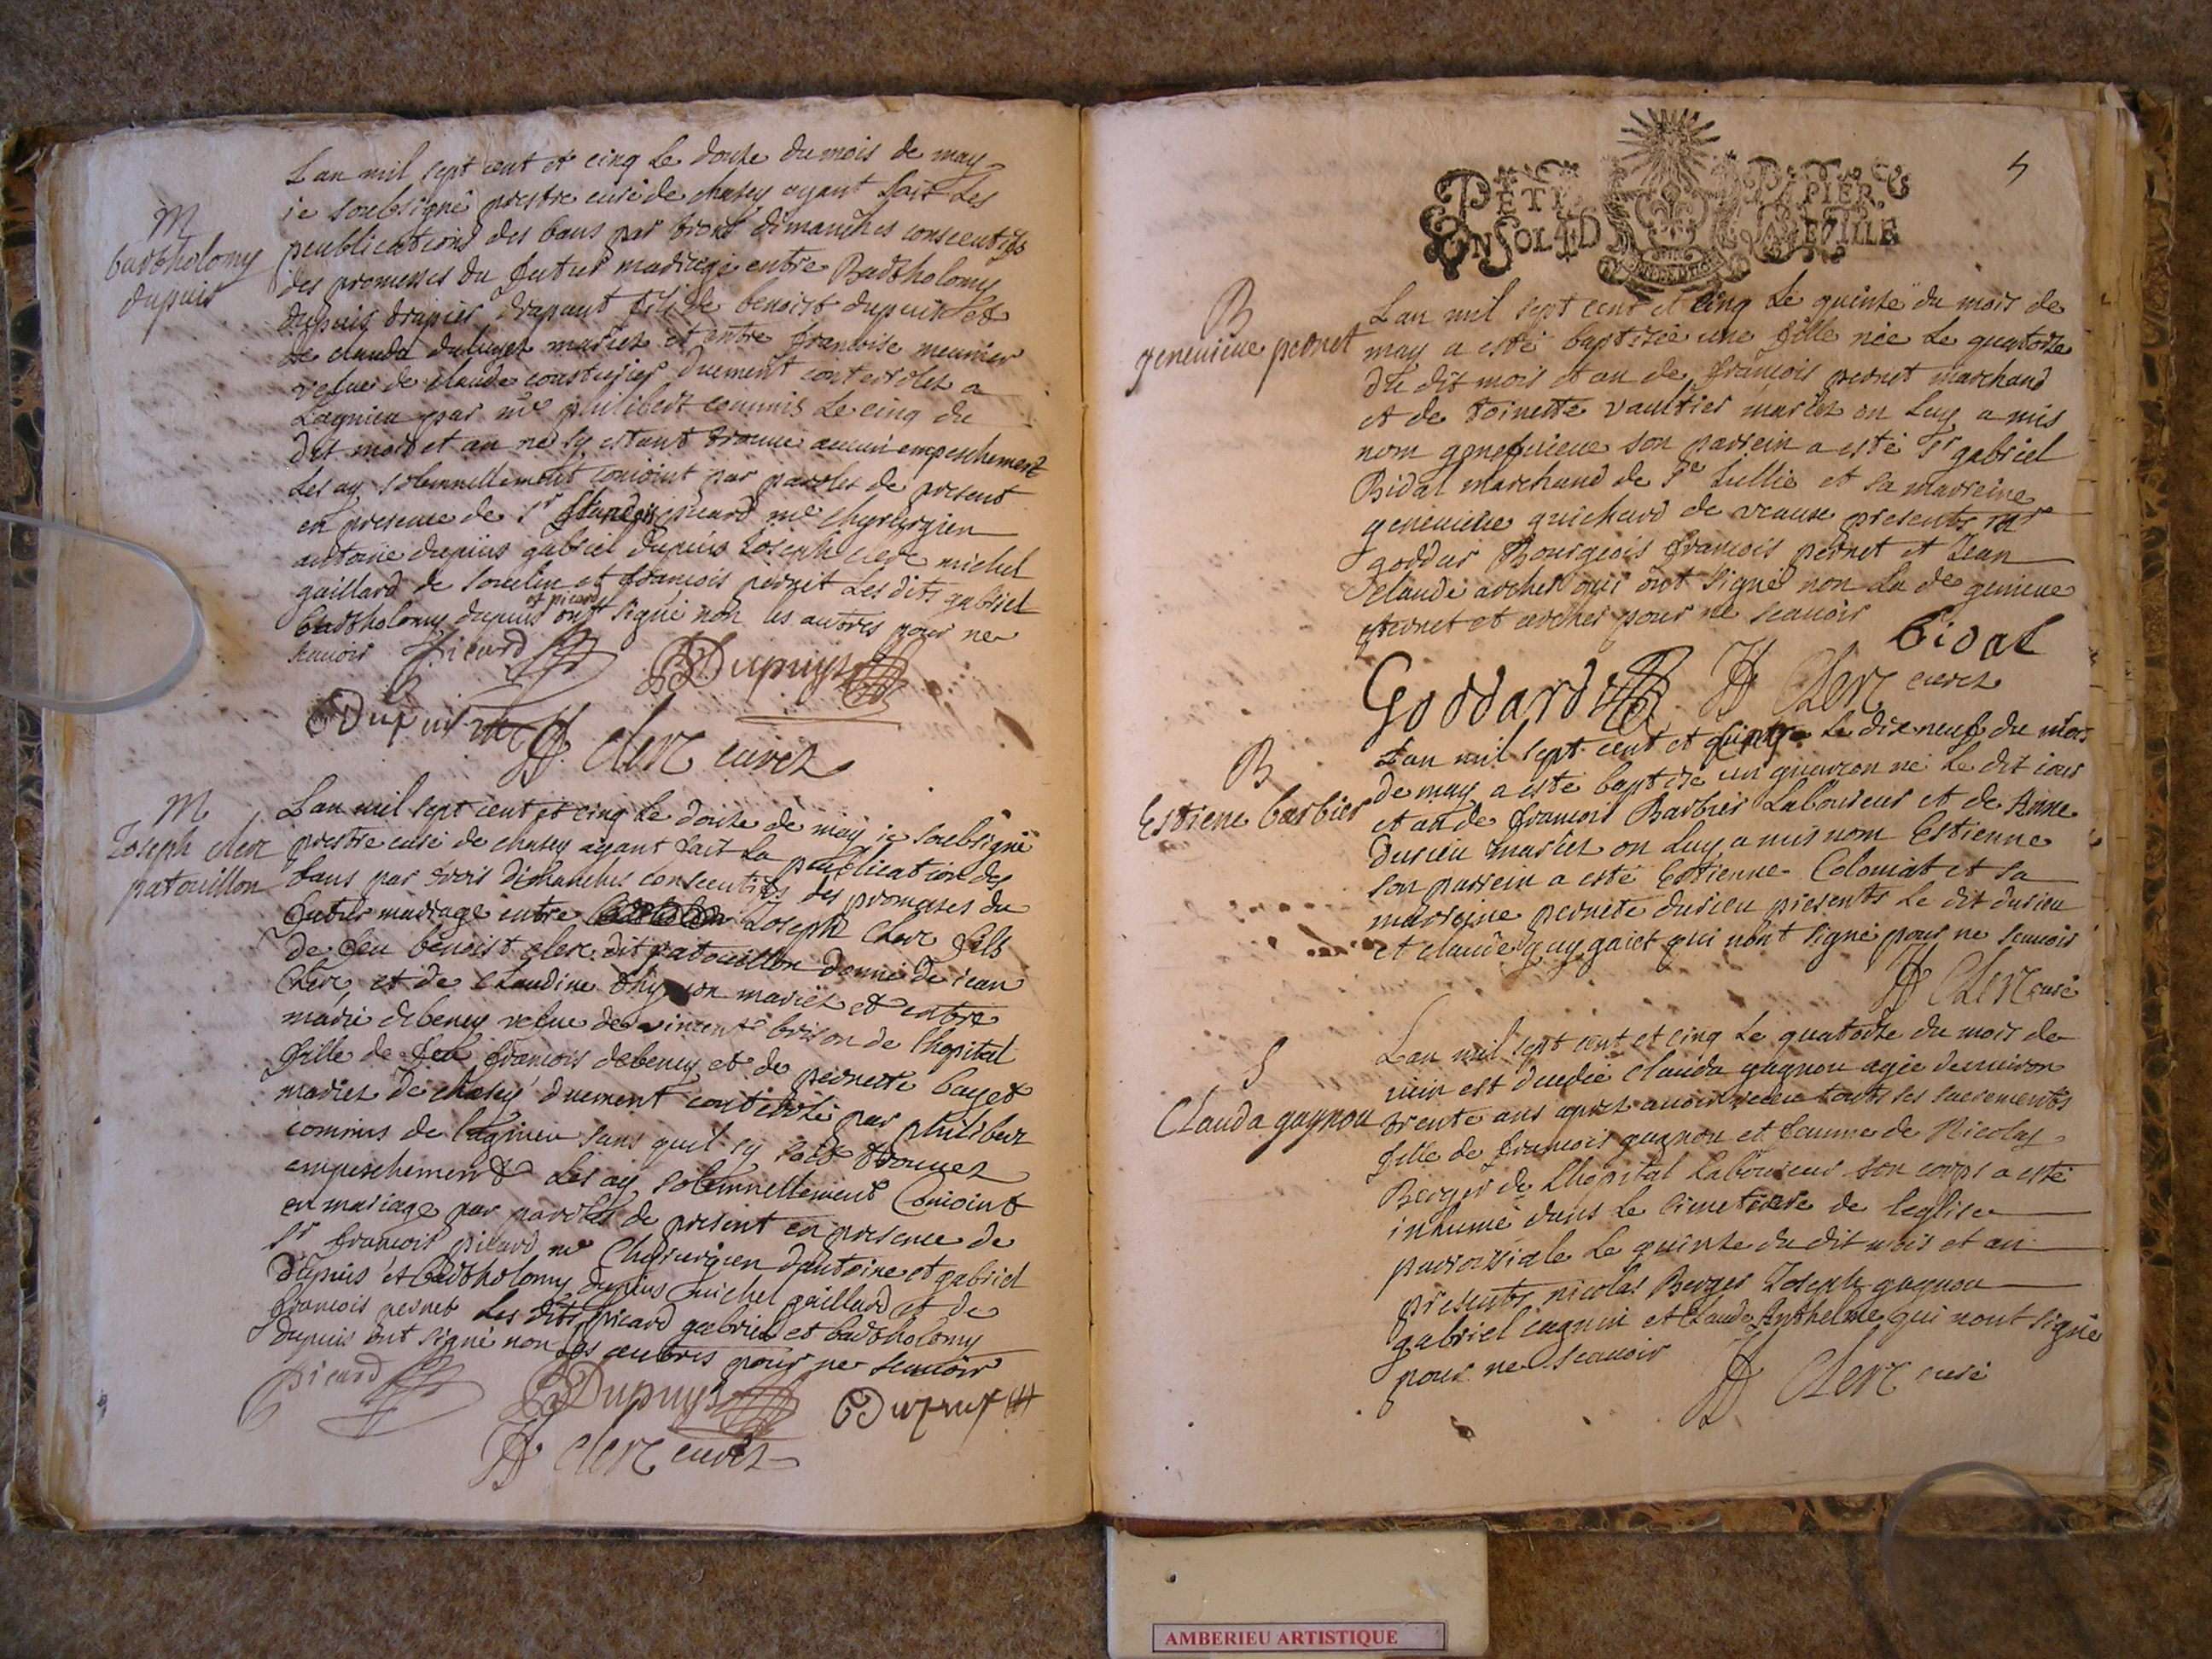 Lan mil sept cent et cinq Le douze du mois de may
ie soubsigné prestre curé de chasey ayant fait Les
publications des bans par trois dimanches consecutifs
des promesses du futur mariage entre Bartholomy
dupuis drapier drapant fils de benoist dupuis et
de clauda mariez et entre francoise meunier
vefue de claude duement controlez a
Lagnieu par me philibert commis Le cinq du
dit mois et an ne sy estant trouue aucun empeschement
Les ay solemnellement conioint par paroles de present
en presence de sr françois picard me chyrurgien
antoine dupuis gabriel dupuis Joseph clerc michel
gaillard de soucelin et françois pernet Les dits gabriel
et picard
bartholomy dupuis ont signé non les autres pour ne
scauoir Picard Dupuys
Dupuis Clerc curez
M
bartholomy
dupuis
Lan mil sept cent et cinq Le douze de may ie soubsigné
prestre curé de chasey ayant fait La publication des
bans par trois dimanches consecutifs des promesses du
futur mariage entre Joseph Clerc fils
de feu benoist clerc dit patouillon donné de iean
Clerc et de Claudine mariez et entre
marie debeney vefue de vincent brison de lhopital
fille de feu francois debeney et de pernette bayet
mariez de chasey duement controlé par philibert
commis de lagnieu sans quil sy soit trouuez
empeschement Les ay solemnellement Conioint
en mariage par paroles de present en presence de
sr francois picard me Chyrurgien dantoine et gabriel
dupuis et bartholomy dupuis michel gaillard et de
francois pernet Les dits picard gabriel et bartholomy
dupuis ont signé non les autres pour ne scauoir
Picard Dupuys Dupuis
Clerc curez
M
Joseph clerc
patouillon
5
PETIT PAPIER
UN SOL 4 D LA FEUILLE
B
geneuieue pernet
Lan mil sept cent et cinq Le quinze du mois de
may a esté baptisée une fille née Le quatorze
du dit mois et an de françois pernet marchand
et de Toinette vaultier mariez on Luy a mis
nom geneuieue son parrein a esté sr gabriel
Bidal marchand de ste Jullie et sa marreine
geneuieue guichard de vcaux presents mr
goddar Bourgeois françois pernet et Jean
claude archer qui ont signé non La de genieue
pernet et archer pour ne scauoir
bidal
Goddard Clerc curez
B
Estiene barbier
Lan mil sept cent et cinq Le dix neuf du mois
de may a esté baptisé un guarcon né Le dit iour
et an de françois Barbier Laboureur et de Anne
durieu mariez on Luy a mis nom Estienne
son parrein a esté Estienne Colomiat et sa
marreine pernette durieu presents Le dit durieu
et claude guygaiet qui nont signé pour ne scauoir
Clerc curé
S
Clauda gagnou
Lan mil sept cent et cinq Le quatorze du mois de
iuin est decedée clauda gagnou agée denuiron
trente ans apres auoir receu touts ses sacrements
fille de françois gagnou et famme de Nicolas
Berger de Lhopital Laboureur son corps a esté
inhumé dans Le cimetiere de leglise
parroissiale Le quinze du dit mois et an
presents nicolas Berger Joseph gagnou
gabriel cagnin et Claude Anthelme qui nont signé
pour ne scauoir
Clerc curé
AMBERIEU ARTISTIQUE